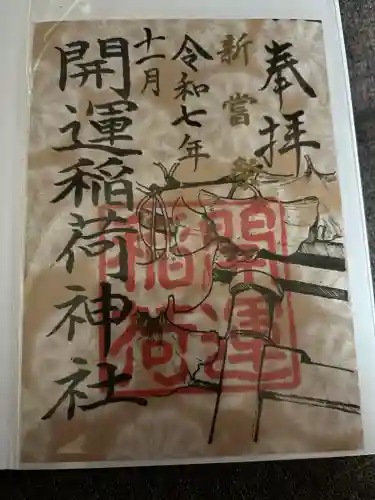 奉拝
新嘗祭
令和七年
十一月
開運稲荷神社
開運
稲荷